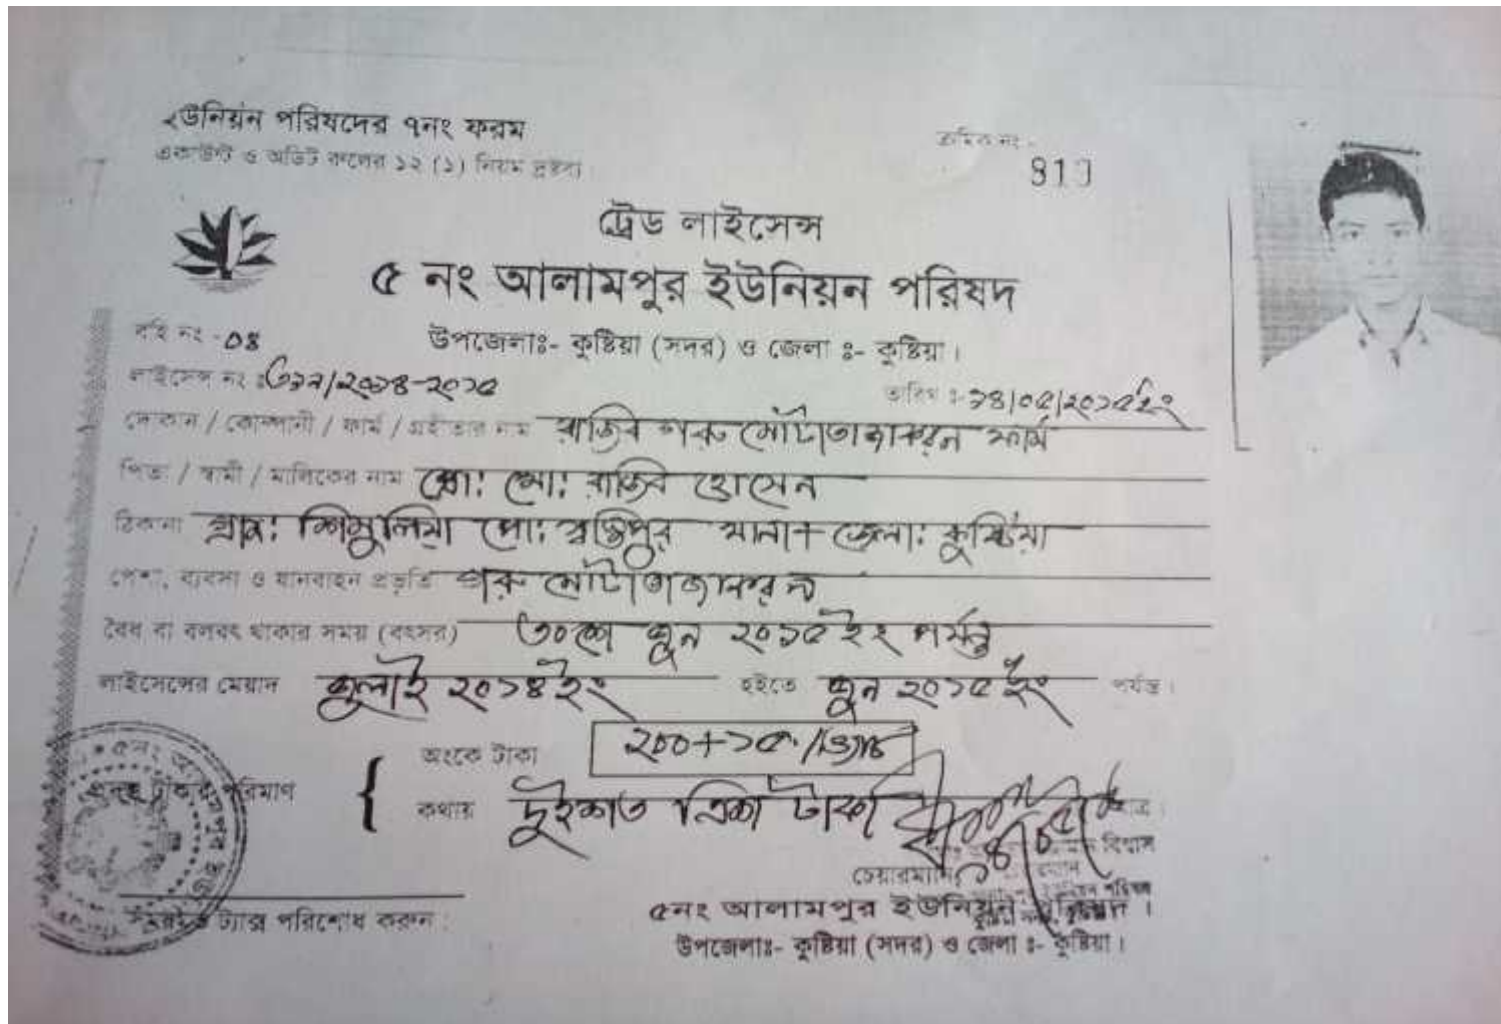 ইউনিয়ন পরিষদের ৭নং ফরম
একাউন্ট ও অডিট রুলের ১২ (১) নিয়ম দ্রষ্টব্য
ক্রমিক নং -
ট্রেড লাইসেন্স
৫ নং আলামপুর ইউনিয়ন পরিষদ
বহি নং - ০৪
উপজেলাঃ- কুষ্টিয়া (সদর) ও জেলা ঃ- কুষ্টিয়া।
লাইসেন্স নং ঃ /২০১৪-২০১৫
তারিখ ঃ- ১৪/০৫/২০১৫ইং
দোকান / কোম্পানী / ফার্ম / গ্রহীতার নাম রাজিব গরু মোটাতাজাকরন ফার্ম
পিতা / স্বামী / মালিকের নাম প্রো: মো: রাজিব হোসেন
ঠিকানা গ্রাম: শিমুলিয়া পো: স্বস্তিপুর থানা+জেলা: কুষ্টিয়া
পেশা, ব্যবসা ও যানবাহন প্রভৃতি গরু মোটাতাজাকরন
বৈধ বা বলবৎ থাকার সময় (বৎসর) ৩০শে জুন ২০১৫ ইং পর্যন্ত
লাইসেন্সের মেয়াদ জুলাই ২০১৪ইং হইতে জুন ২০১৫ ইং পর্যন্ত।
অংকে টাকা ২০০+
টাকার পরিমাণ
কথায় দুইশত ত্রিশ টাকা
বিশ্বাস
চেয়ারম্যান
ট্যাক্স পরিশোধ করুন
৫নং আলামপুর ইউনিয়ন পরিষদ।
উপজেলাঃ- কুষ্টিয়া (সদর) ও জেলা ঃ- কুষ্টিয়া।